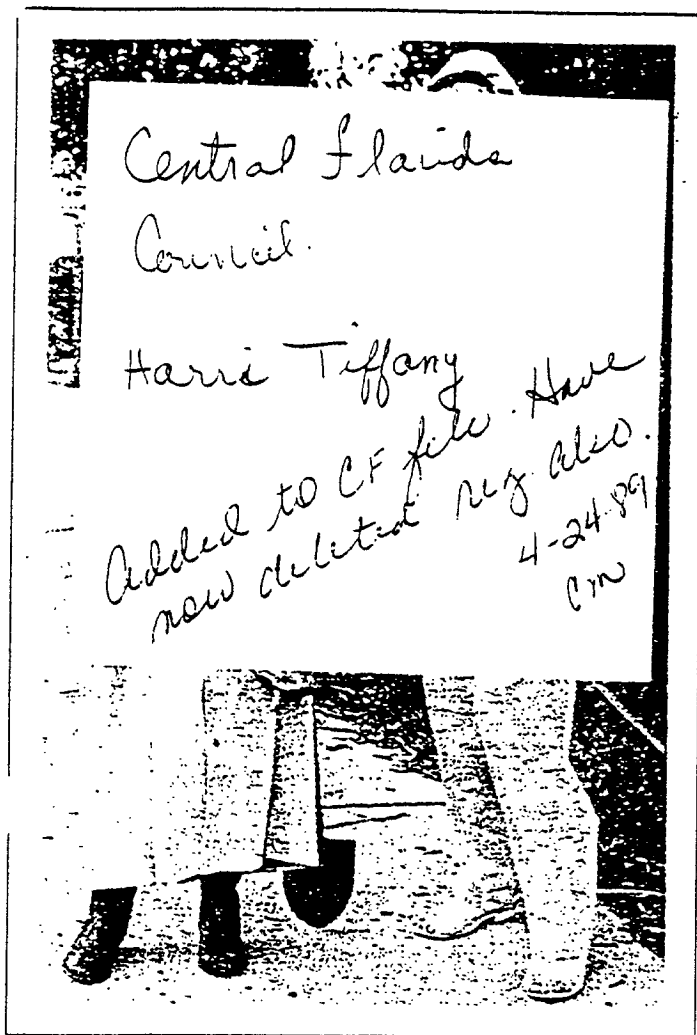 Central Florida
Council.
Harris Tiffany
Added to CF file. Have
now deleted reg. also.
4-24-89
cm